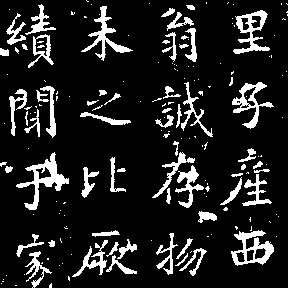 里子產西
翁誠存物
未之比厥
績聞于家